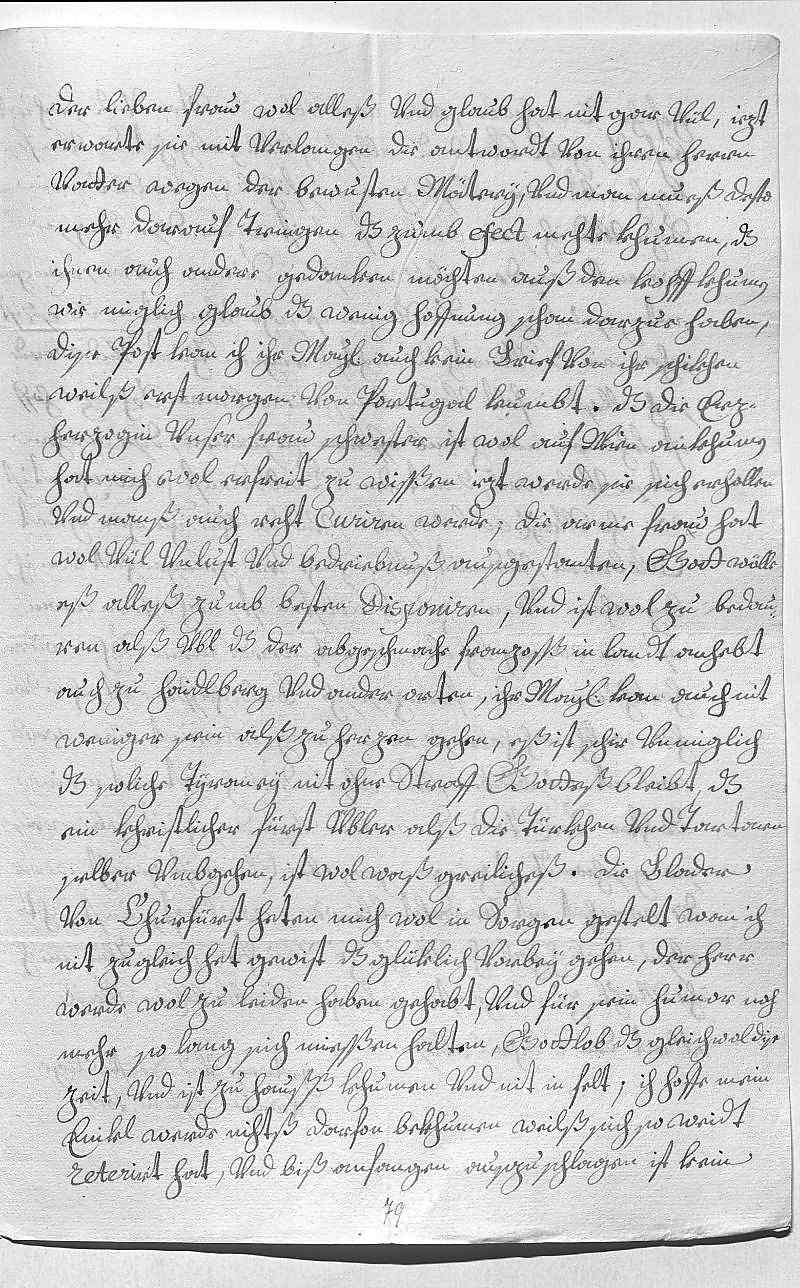 der lieben fraw wol alleß Und glaub hat nit gar Vül, iezt
erwarte sie mit Verlangen die antwordt Von ihren herrn
Vatter wegen der bewusten Mätery, Und man mueß desto
mehr darauf Tringen dz zumb efect mechte khumen, dz
ihnen auch andere gedanken möchten auß den kopff khumen
wie miglich glaub dz wenig hoffnung schan darzue haben,
dise Post kan ich ihr Mayl. auch kein Brief Von ihr schikhen
weilß erst morgen Von Portugal kumbt. dz die Erz-
herzogin Unser fraw schwester ist wol auf Wien ankhumen
hat mich wol erfreit zu wissen iezt werde sie sich erhollen
Und manß auch recht Curiren werde; die arme fraw hat
wol Vül Unlust Und bedriebnuß ausgestanten, Gott wölle
eß alleß zumb besten Disponiren, Und ist wol zu bedau-
ren alß Ubl dz der abgeschmache franzoß in landt anhebt
auch zu haidlberg Und ander orten, ihr Mayl. kan auch nit
weniger sein alß zu herzen gehen, eß ist schir Unmiglich
dz soliche Tyraney nit ohne Straff Gotteß bleibt, dz
ein khristlicher fürst Ubler alß die Türkhen Und Tartaren
selber Umbgehen, ist wol waß greilicheß. die Blader
Von Churfürst heten mich wol in Sorgen gestelt wan ich
nit zugleich het gewist dz glüklich Vorbey gehen, der herr
werde wol zu leiden haben gehabt, Und für sein humor noch
mehr so lang sich miessen halten, Gottlob dz gleichwol dise
zeit, Und ist zu hauß khumen Und nit in felt; ich hoffe mein
Enikl werde nichtß darfon bekhumen weilß sich so weidt
reterirt hat, Und biß anfangen auszuschlagen ist kein
79